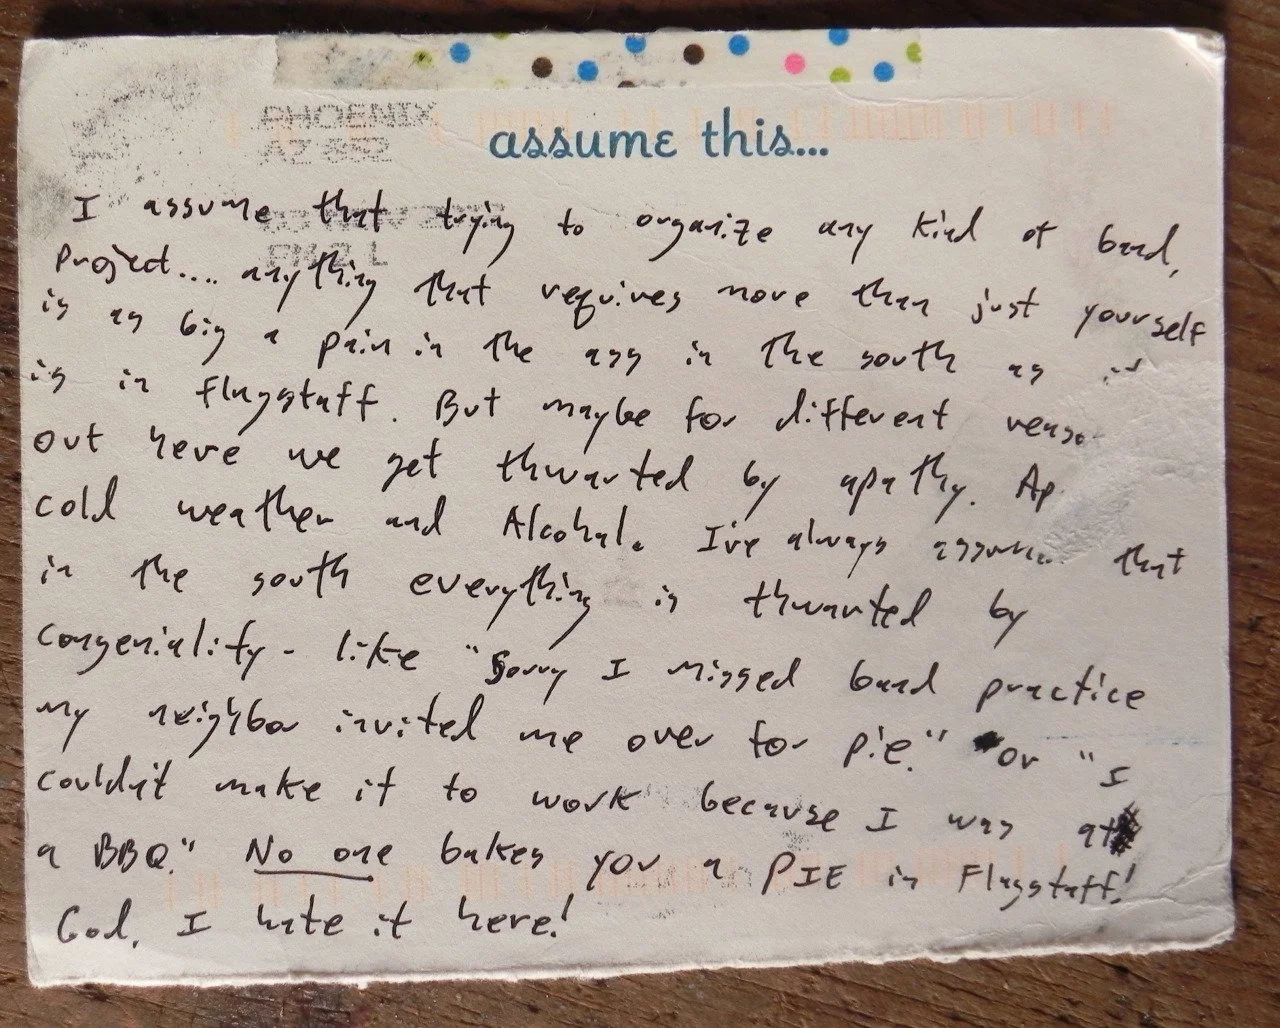 PHOENIX
AZ 852
assume this...
I assume that trying to organize any kind of band,
project.... anything that requires more than just yourself
is as big a pain in the ass in the south as it
is in flagstaff. But maybe for different
out here we get thwarted by apathy.
cold weather and Alcohol. I've always that
in the south everything is thwarted by
congeniality - like "Sorry I missed band practice
my neighbor invited me over for pie." or "I
couldn't make it to work because I was at
a BBQ." No one bakes you a PIE in Flagstaff!
God, I hate it here!